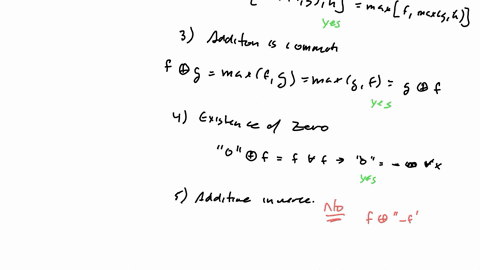 ), h] = max[f, max(g, h)]
yes
3) Addition is commuth
f ⊕ g = max(f, g) = max(g, f) = g ⊕ f
yes
4) Existence of Zero
"0" ⊕ f = f ∀ f → "0" = -∞ ∀x
yes
5) Additive inverse.
No
f ⊕ "-f'